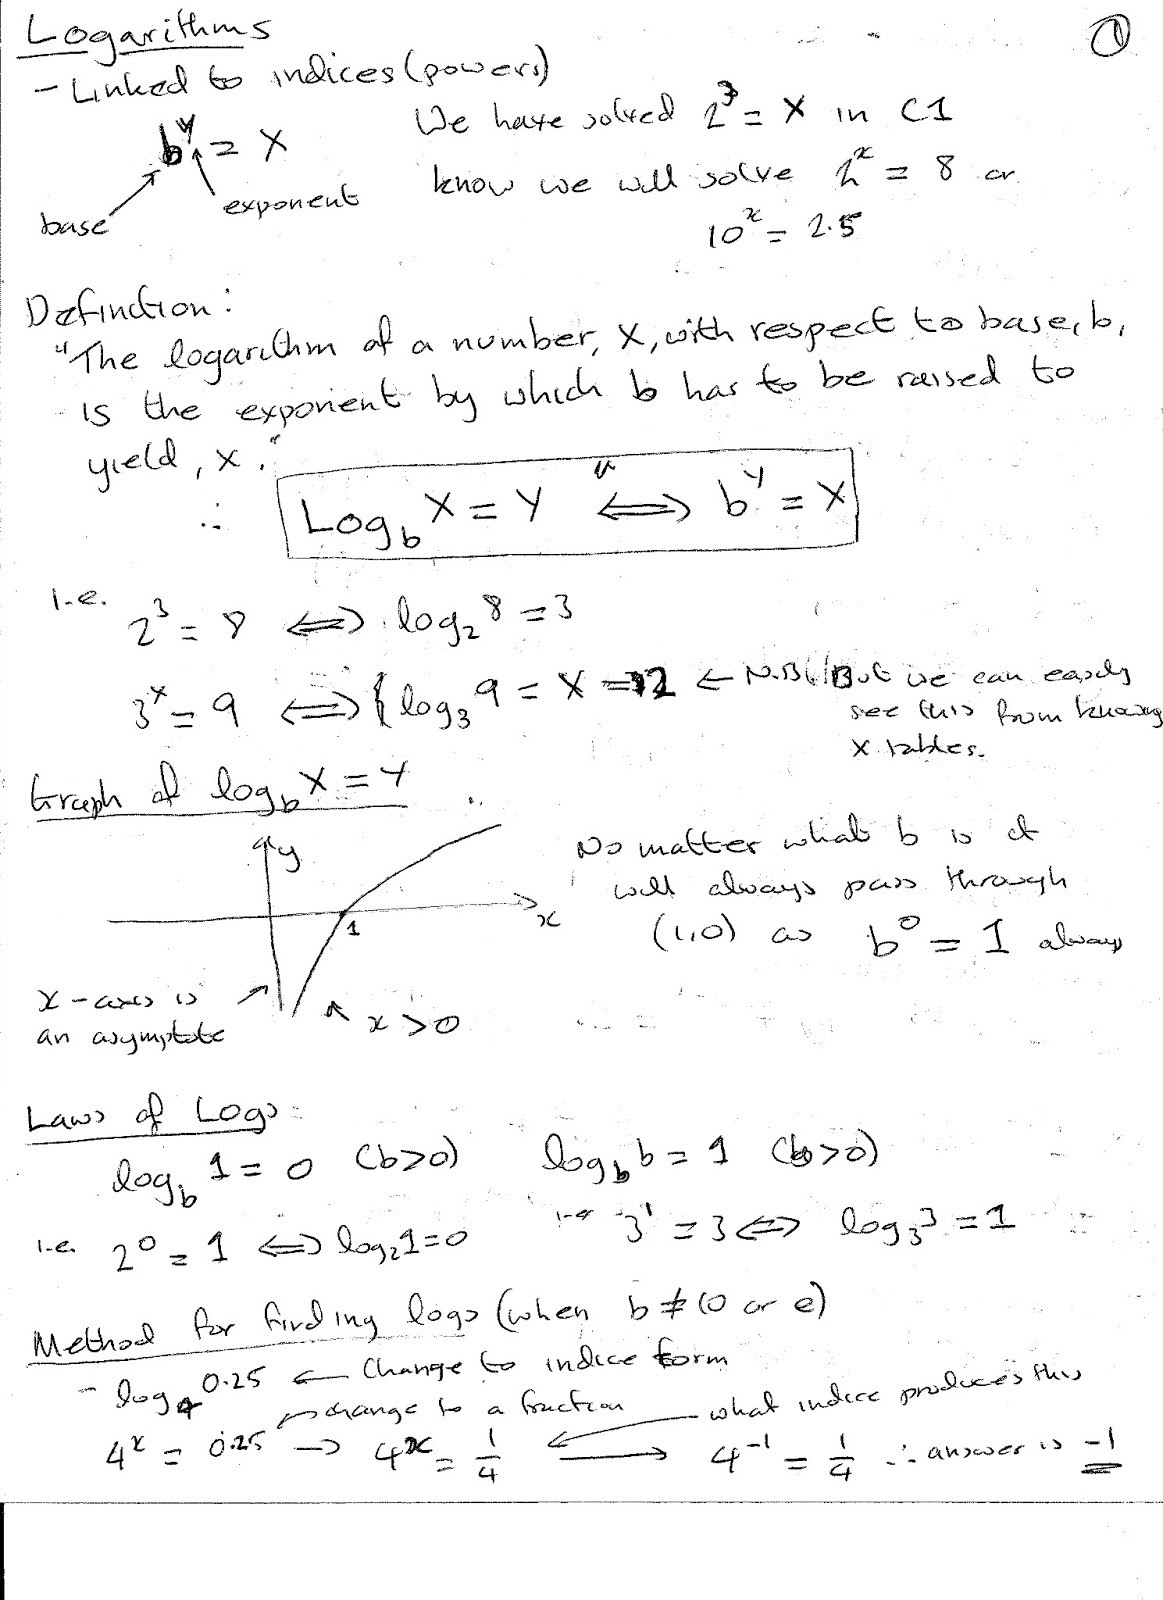 Logarithms
①
- Linked to indices (powers)
b^y = x
base
exponent
We have solved 2^3 = x in C1
know we will solve 2^x = 8 or
10^x = 2.5
Definition:
"The logarithm of a number, x, with respect to base, b,
is the exponent by which b has to be raised to
yield, x."
∴ Log_b x = y ⟺ b^y = x
i.e.
2^3 = 8 ⟺ log_2 8 = 3
3^x = 9 ⟺ log_3 9 = x = 2 ← N.B. But we can easily
see this from knowing
x tables.
Graph of log_b x = y
y
x
1
x-axis is
an asymptote
x > 0
No matter what b is it
will always pass through
(1,0) as b^0 = 1 always
Laws of Logs:
log_b 1 = 0 (b>0) log_b b = 1 (b>0)
i.e. 2^0 = 1 ⟺ log_2 1 = 0 i.e 3^1 = 3 ⟺ log_3 3 = 1
Method for finding logs (when b ≠ 10 or e)
- log_4 0.25 ← Change to indice form
change to a fraction
what indice produces this
4^x = 0.25 → 4^x = 1/4 → 4^-1 = 1/4 ∴ answer is -1